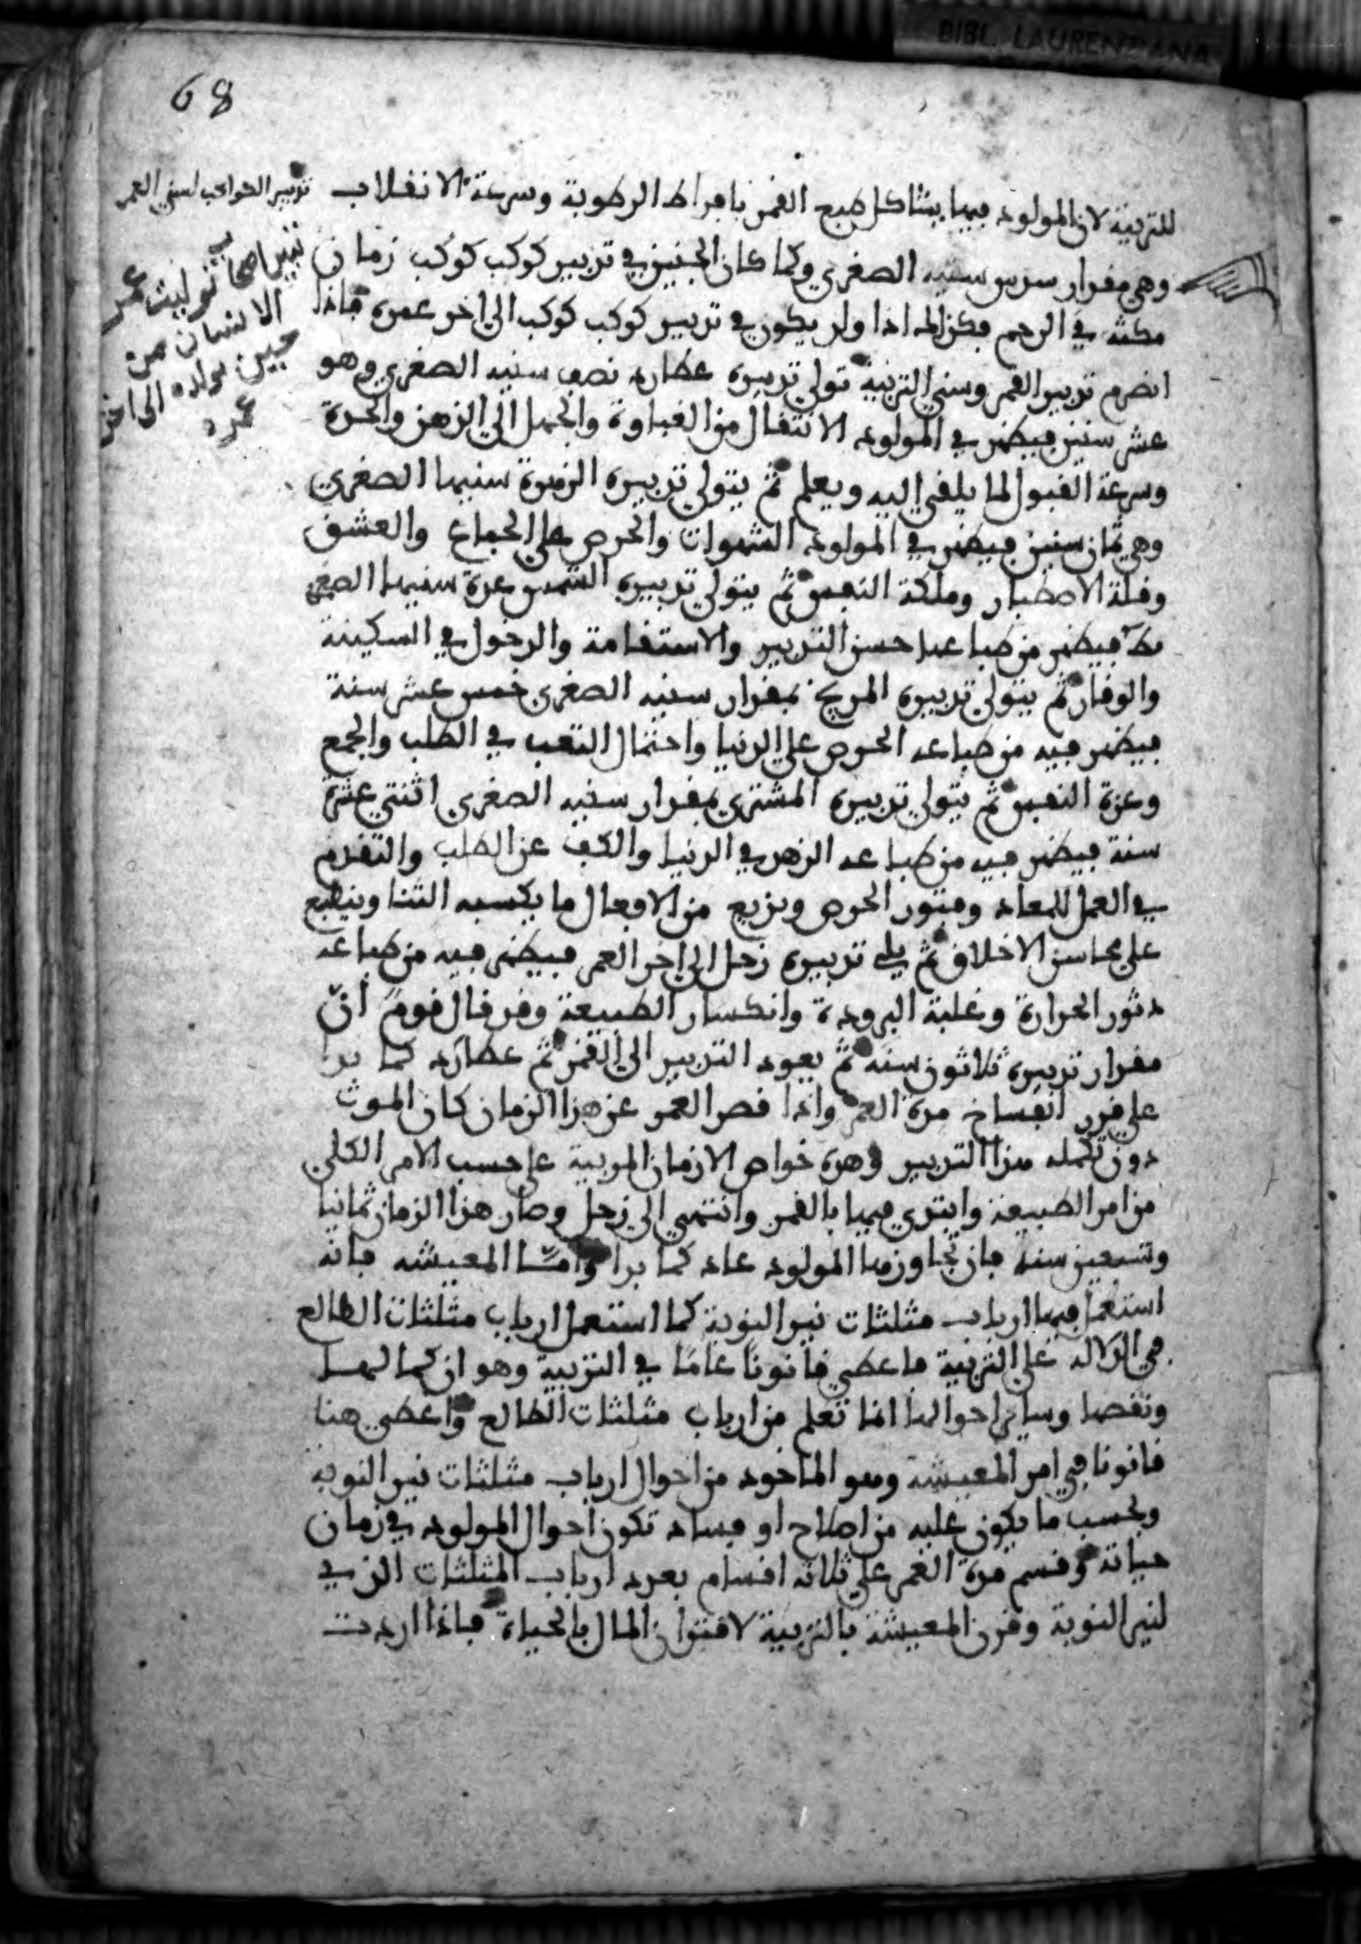 BIBL. LAURENZIANA
68
للتربية لان المولود فيها يشاكل طبع القمر بافراط الرطوبة وسرعة الانقلاب
تدبير الكواكب لسني العمر
وهي مقدار سدس سنيه الصغرى وكما كان الجنين في تدبير كوكب كوكب زمان
مكثه في الرحم فكذلك اذا ولد يكون في تدبير كوكب كوكب الى اخر عمره فاذا
الانسان من
حين يولد الى اخر
عمره
انصرم تدبير القمر وسني التربية تولى تدبيره عطارد نصف سنيه الصغرى وهو
عشر سنين فيظهر في المولود الانتقال من الغباوة والجهل الى الذهن والحدة
وسرعة القبول لما يلقى اليه ويعلم ثم يتولى تدبيره الزهرة سنيها الصغرى
وهي ثمان سنين فيظهر في المولود الشهوات والحرص على الجماع والعشق
وقلة الاصطبار وملكة النفس ثم يتولى تدبيره الشمس عدة سنيها الصغرى
يط فيظهر من طباعها حسن التدبير والاستقامة والدخول في السكينة
والوقار ثم يتولى تدبيره المريخ بمقدار سنيه الصغرى خمس عشر سنة
فيظهر فيه من طباعه الحرص على الدنيا واحتمال التعب في الطلب والجمع
وعزة النفس ثم يتولى تدبيره المشتري بمقدار سنيه الصغرى اثنتي عشرة
سنة فيظهر فيه من طباعه الزهد في الدنيا والكف عن الطلب والتقدم
في العمل للمعاد وفتور الحرص ويزيع من الافعال ما يكسبه الثنا وينطبع
على محاسن الاخلاق ثم يلي تدبيره زحل الى اخر العمر فيظهر فيه من طباعه
دثور الحرارة وغلبة البرودة وانكسار الطبيعة وقد قال قوم ان
مقدار تدبيره ثلاثون سنه ثم يعود التدبير الى القمر ثم عطارد كما بدا
على قدر انفساخ مدة العمر واذا قصر العمر عن هذا الزمان كان الموت
دون تكمله هذا التدبير وهذه خواص الازمان المربية على حسب الامر الكلي
من امر الطبيعة وابتدي فيها بالقمر وانتهي الى زحل وصار هذا الزمان ثمانيا
وتسعين سنة فان تجاوزها المولود عاد كما بدا واما المعيشه فانه
استعمل فيها ارباب مثلثات نير النوبة كما استعمل ارباب مثلثات الطالع
في الدلالة على التربية فاعطى قانونا عاما في التربية وهو ان كمالها
ونقصها وساير احوالها انما تعلم من ارباب مثلثات الطالع واعطى هنا
قانونا في امر المعيشة وهو الماخوذ من احوال ارباب مثلثات نير النوبة
وبحسب ما يكون عليه من اصلاح او فساد تكون احوال المولود في زمان
حياته وقسم مدة العمر على ثلاثة اقسام بعدد ارباب المثلثات الذي
لنير النوبة وقرن المعيشة بالتربية لاقتران المال بالحياة فاذا اردت